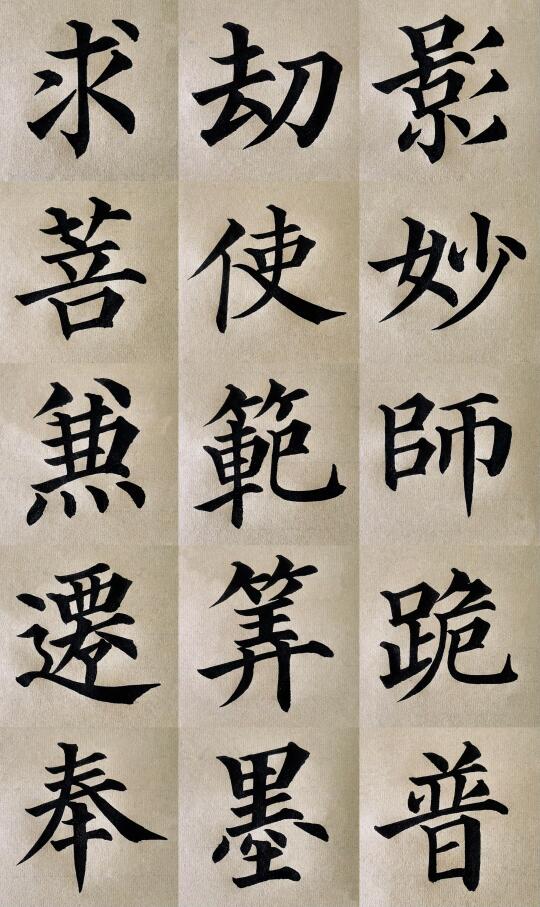 影妙師跪普
刧使範筭墨
求菩兼遷奉